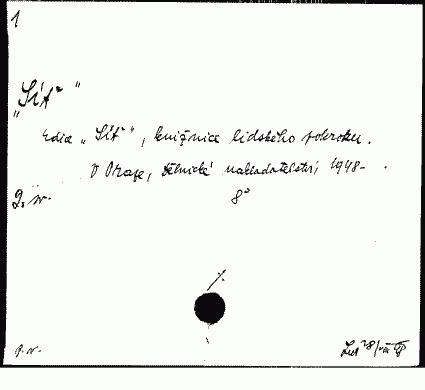 1
„Síť"
Edice „Síť", knižnice lidského pokroku.
V Praze, Dělnické nakladatelství, 1948-.
8°